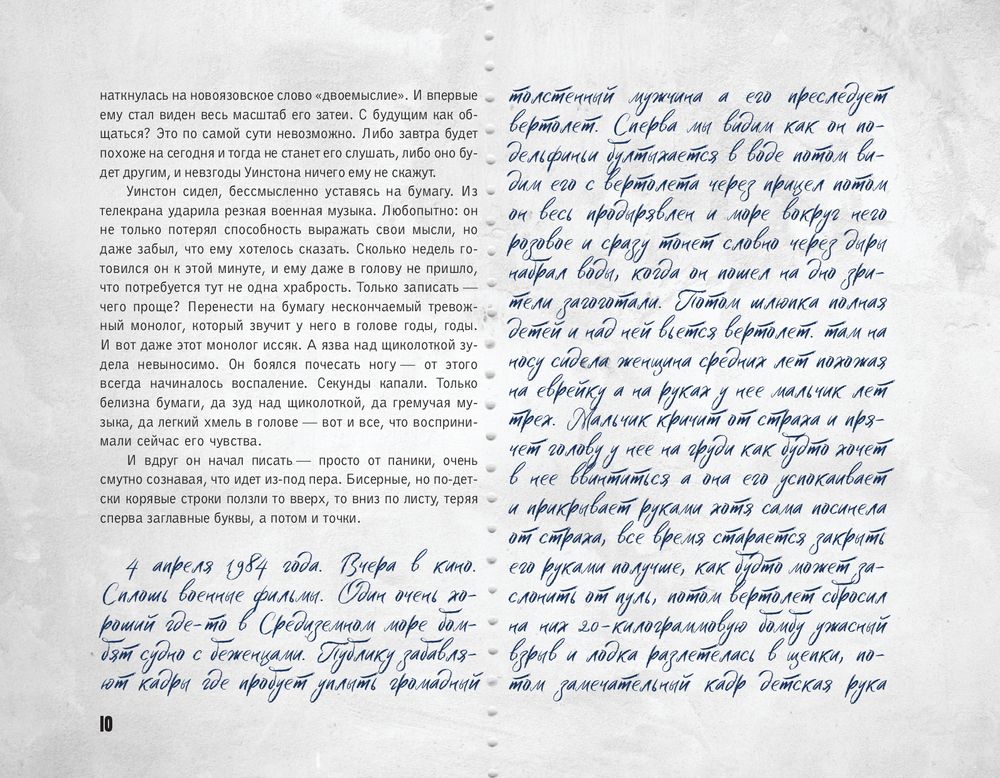 наткнулась на новоязовское слово «двоемыслие». И впервые
ему стал виден весь масштаб его затеи. С будущим как об-
щаться? Это по самой сути невозможно. Либо завтра будет
похоже на сегодня и тогда не станет его слушать, либо оно бу-
дет другим, и невзгоды Уинстона ничего ему не скажут.
Уинстон сидел, бессмысленно уставясь на бумагу. Из
телекрана ударила резкая военная музыка. Любопытно: он
не только потерял способность выражать свои мысли, но
даже забыл, что ему хотелось сказать. Сколько недель го-
товился он к этой минуте, и ему даже в голову не пришло,
что потребуется тут не одна храбрость. Только записать —
чего проще? Перенести на бумагу нескончаемый тревож-
ный монолог, который звучит у него в голове годы, годы.
И вот даже этот монолог иссяк. А язва над щиколоткой зу-
дела невыносимо. Он боялся почесать ногу — от этого
всегда начиналось воспаление. Секунды капали. Только
белизна бумаги, да зуд над щиколоткой, да гремучая му-
зыка, да легкий хмель в голове — вот и все, что восприни-
мали сейчас его чувства.
И вдруг он начал писать — просто от паники, очень
смутно сознавая, что идет из-под пера. Бисерные, но по-дет-
ски корявые строки ползли то вверх, то вниз по листу, теряя
сперва заглавные буквы, а потом и точки.
4 апреля 1984 года. Вчера в кино.
Сплошь военные фильмы. Один очень хо-
роший где-то в Средиземном море бом-
бят судно с беженцами. Публику забавля-
ют кадры где пробует уплыть громадный
10
толстенный мужчина а его преследует
вертолет. Сперва мы видим как он по-
дельфиньи бултыхается в воде потом ви-
дим его с вертолета через прицел потом
он весь продырявлен и море вокруг него
розовое и сразу тонет словно через дыры
набрал воды, когда он пошел на дно зри-
тели загоготали. Потом шлюпка полная
детей и над ней вьется вертолет. там на
носу сидела женщина средних лет похожая
на еврейку а на руках у нее мальчик лет
трех. Мальчик кричит от страха и пря-
чет голову у нее на груди как будто хочет
в нее ввинтиться а она его успокаивает
и прикрывает руками хотя сама посинела
от страха, все время старается закрыть
его руками получше, как будто может за-
слонить от пуль, потом вертолет сбросил
на них 20-килограммовую бомбу ужасный
взрыв и лодка разлетелась в щепки, по-
том замечательный кадр детская рука